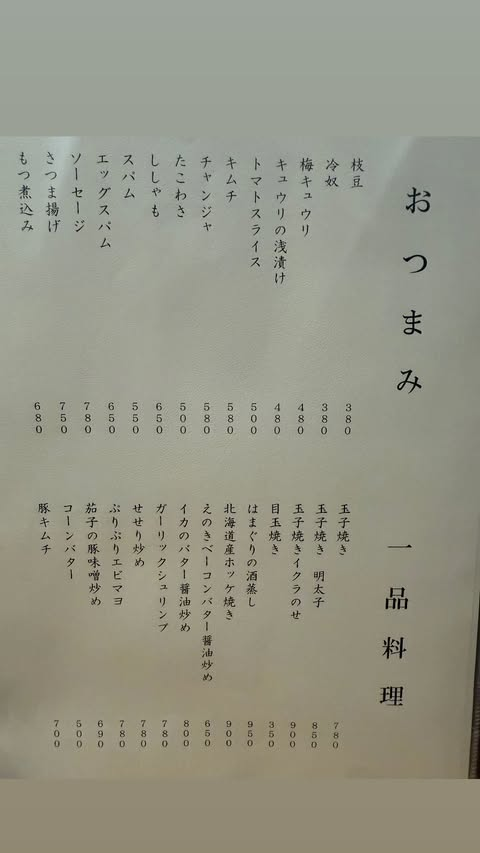 おつまみ
枝豆 380
冷奴 380
梅キュウリ 480
キュウリの浅漬け 480
トマトスライス 500
キムチ 580
チャンジャ 580
たこわさ 500
ししゃも 650
スパム 550
エッグスパム 650
ソーセージ 780
さつま揚げ 750
もつ煮込み 680
一品料理
玉子焼き 780
玉子焼き 明太子 850
玉子焼きイクラのせ 900
目玉焼き 350
はまぐりの酒蒸し 950
北海道産ホッケ焼き 900
えのきベーコンバター醤油炒め 650
イカのバター醤油炒め 800
ガーリックシュリンプ 780
せせり炒め 780
ぷりぷりエビマヨ 780
茄子の豚味噌炒め 690
コーンバター 500
豚キムチ 700